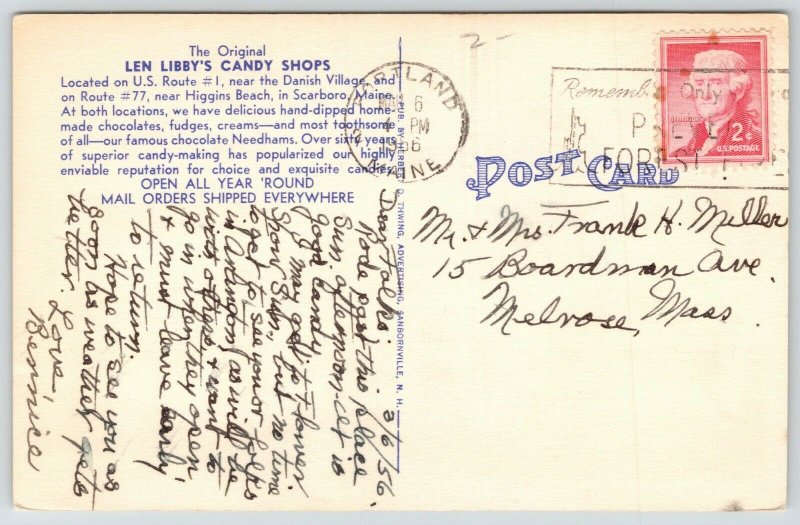 The Original
LEN LIBBY'S CANDY SHOPS
Located on U.S. Route #1, near the Danish Village, and
on Route #77, near Higgins Beach, in Scarboro, Maine.
At both locations, we have delicious hand-dipped home
made chocolates, fudges, creams—and most toothsome
of all—our famous chocolate Needhams. Over sixty years
of superior candy-making has popularized our highly
enviable reputation for choice and exquisite candies.
OPEN ALL YEAR 'ROUND
MAIL ORDERS SHIPPED EVERYWHERE
3/6/56.
Dear Folks:
Rode past this place
Sun. afternoon—it is
good candy.
I may go to Flower
Show Sun. but no time
to get to see you or folks
in Arlington, as will be
with others & want to
go in when they open
& must leave early
to return.
Hope to see you as
soon as weather gets
better. Love,
Bernice
PUB. BY HERBERT O. THWING, ADVERTISING, SANBORNVILLE, N. H.
PORTLAND
MAR 6
PM
1956
MAINE
2-
Remember Only
FOREST
2¢
U.S. POSTAGE
POST CARD
Mr. & Mrs. Frank H. Miller
15 Boardman Ave.
Melrose, Mass.